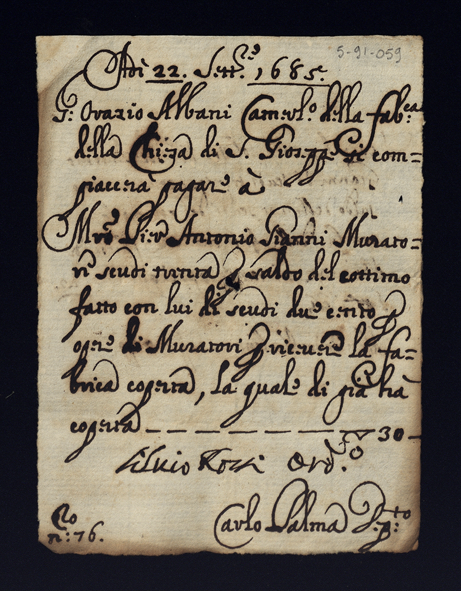 5-91-059
Adì 22. Sett.re 1685.
S.r Orazio Albani Camerl.o della fab.ca
della Chieza di S. Gioseppe si com=
piacerà pagare à
M.ro Pier Antonio Gianni Murato=
ri scudi trenta p saldo del cottimo
fatto con lui di scudi due cento p
opre di Muratori p ricevere la fa=
brica coperta, la quale di già hà
coperta — — — — — — — 30 —
Silvio Rossi
Carlo Palma
n.o 76.